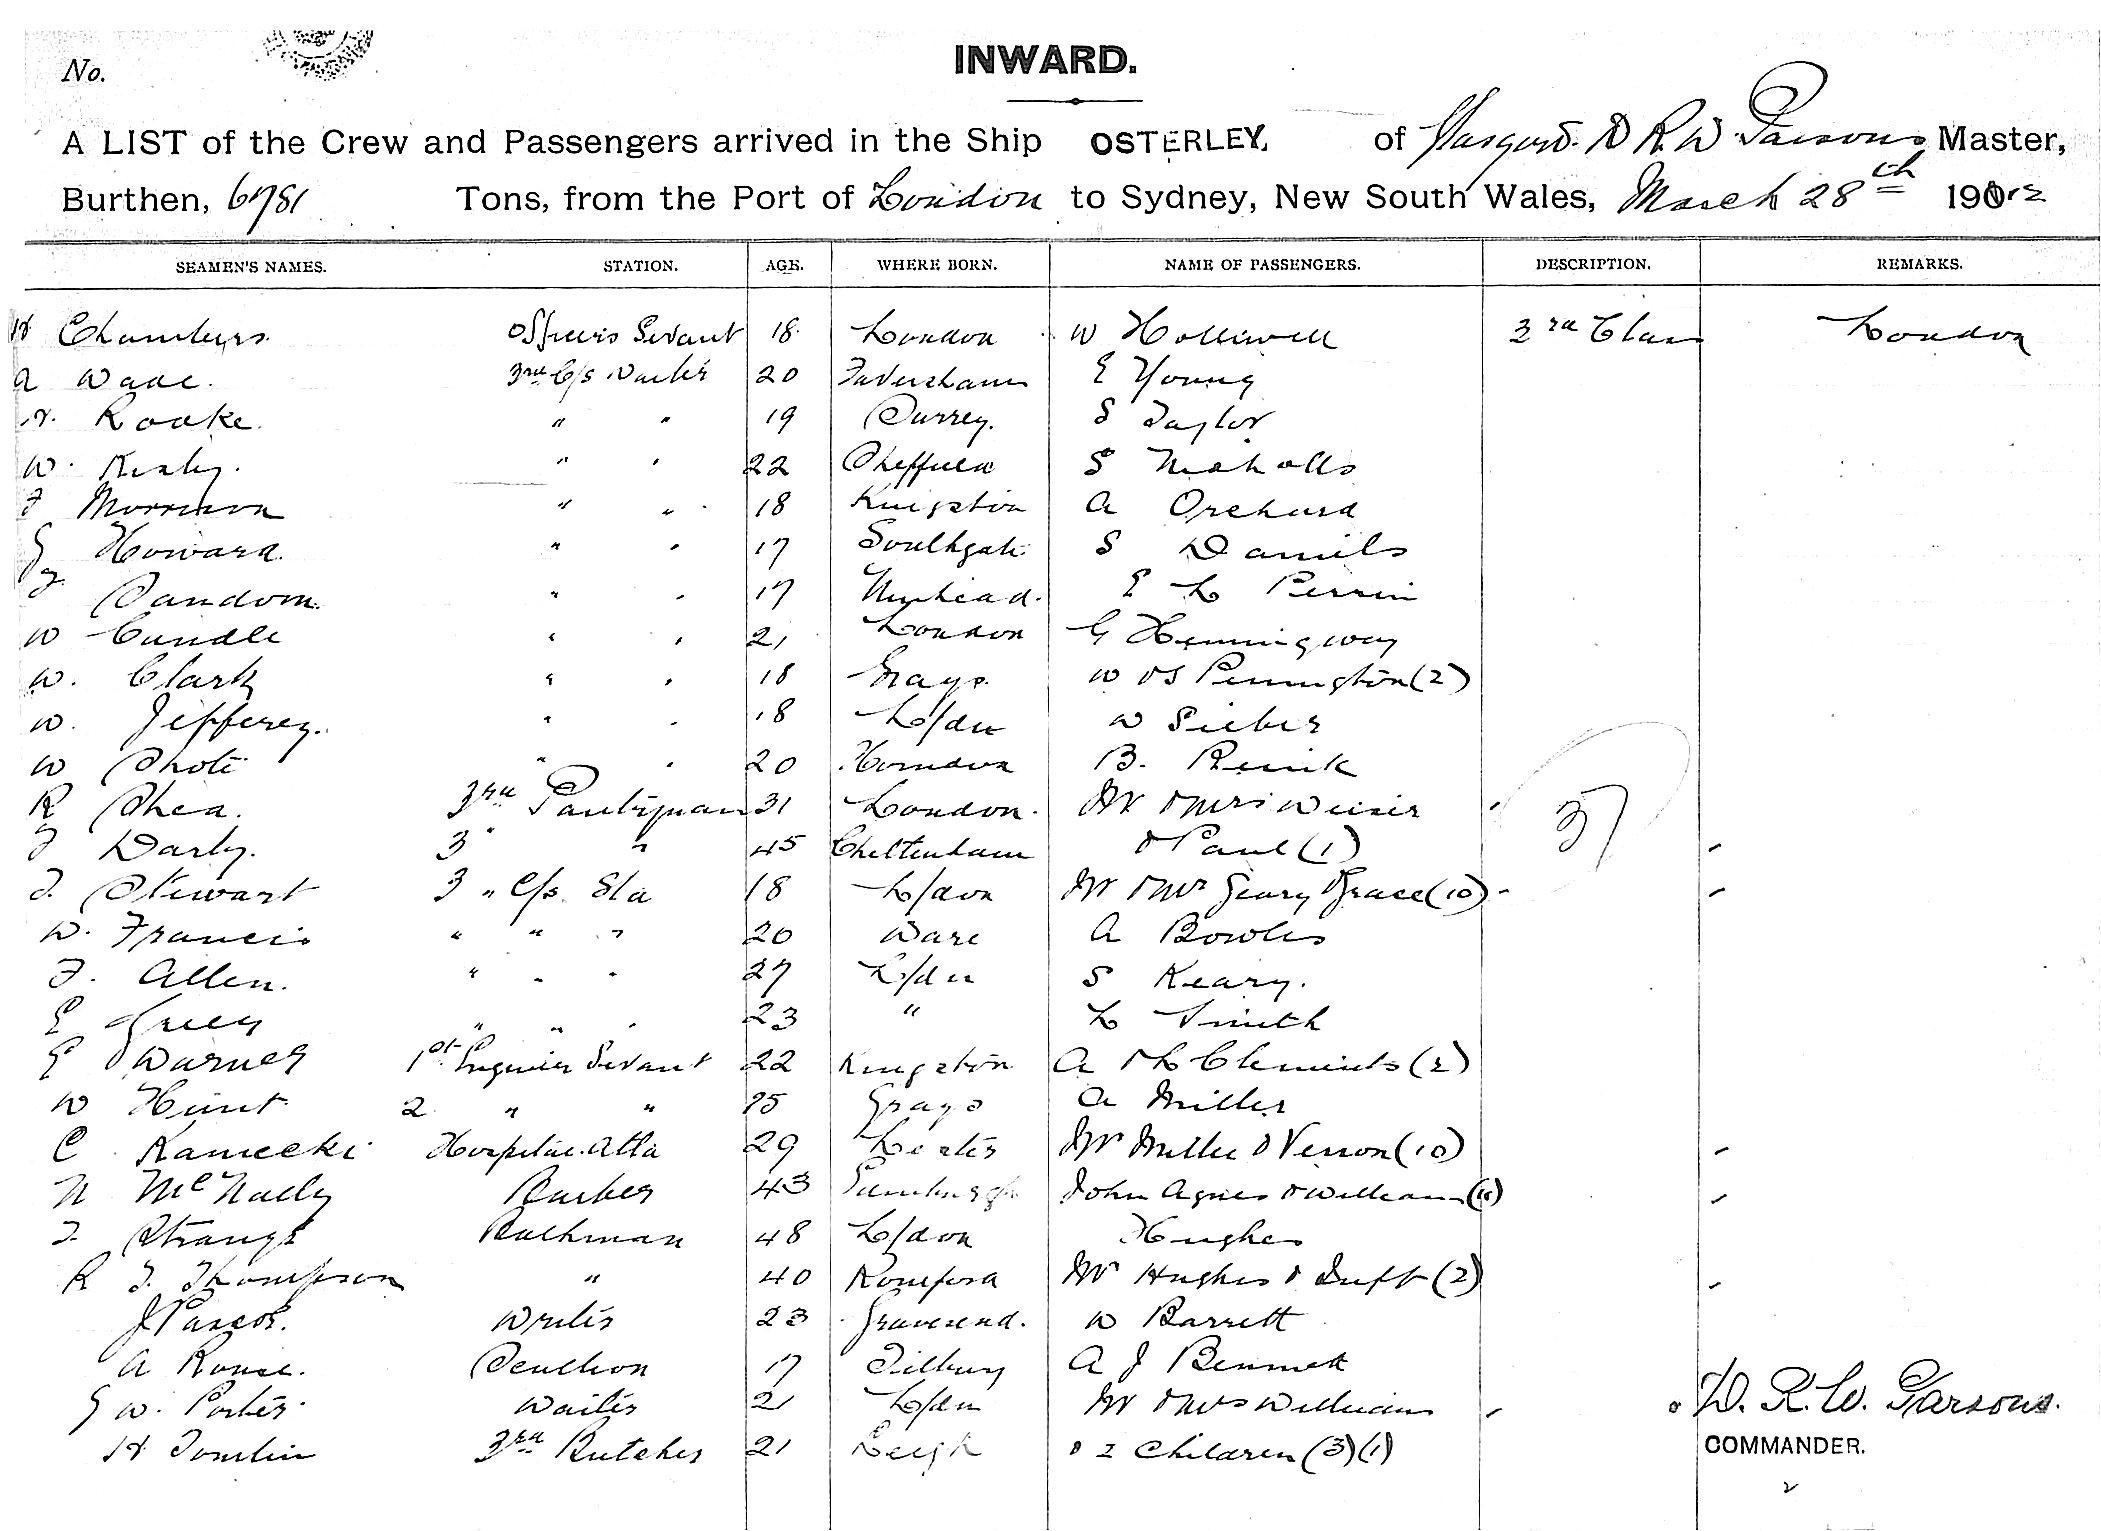 No.
INWARD.
A LIST of the Crew and Passengers arrived in the Ship OSTERLEY, of D R W Parsons Master,
Burthen, 6781 Tons, from the Port of London to Sydney, New South Wales, March 28th 1912
SEAMEN'S NAMES. STATION. AGE. WHERE BORN. NAME OF PASSENGERS. DESCRIPTION. REMARKS.
H Chambers Officers Servant 18 London W Holliwell 3rd Class London
A Wade. 3rd C/s Waiter 20 Faversham E Young
H. Roake. " " 19 Surrey. S Taylor
W. " " 22 Sheffield S Nicholls
F Morrison " " 18 Kingston A Orchard
G Howard. " " 17 Southgate S Daniels
F Sandom. " " 17 Nunhead. E L Perrin
W Cundle " " 21 London G Hemmingway
W. Clark " " 18 Grays. W & S Pennington (2)
W. Jefferey. " " 18 L/dn W Sieber
W Shote " " 20 Horndon B. Renik
R Shea. 3rd Pantryman 31 London. Mr & Mrs Weiser "
F Darby. 3 " " 45 Cheltenham & Paul (1) 37 "
F. Stewart 3 " C/s. Std 18 L/don Mr & Mrs Geary & Grace (10) " "
W. Francis " " " 20 Ware A Bowles
F. Allen. " " " 27 L/dn S Keary.
E Green " " " 23 " L Smith
E Warner 1st Engineer Servant 22 Kingston A & L Clements (2)
W Hunt 2 " " 25 Grays A Miller
C Kamecki Hospital Attd 29 Mr Miller & Vernon (10) "
N McNally Barber 43 Edinburgh John Agnes & William "
F. Strange Bathman 48 L/don Hughes
R F. Thompson " 40 Romford Mr Hughes & Tuft (2) "
J Pascoe. Writer 23 Gravesend. W Barrett
A Rouse. Scullion 17 Tilbury A J Bennett
G W. Porter. Waiter 21 L/dn Mr & Mrs Williams " D. R. W. Parsons.
H Tomlin 3rd Butcher 21 Leigh & 2 Children (3) (1) COMMANDER.